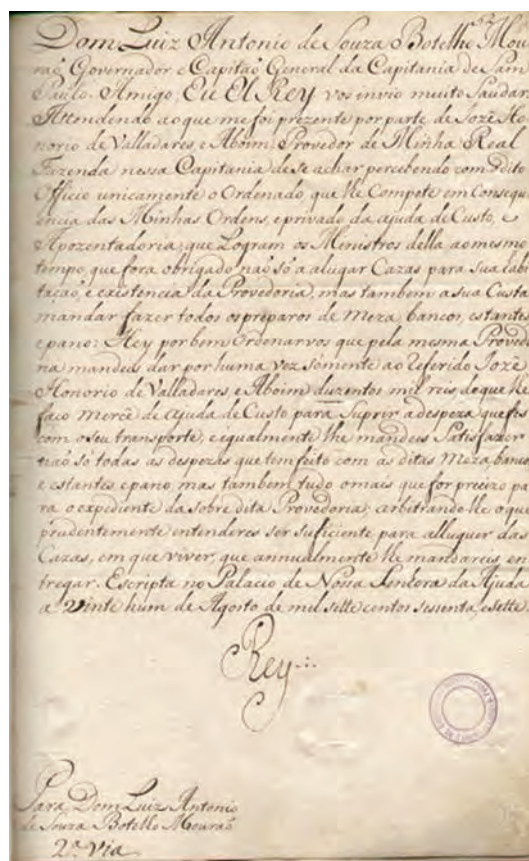 Dom Luiz Antonio de Souza Botelho Mou
raõ, Governador e Capitaõ General da Capitania de Sam
Paulo. Amigo, Eu El Rey vos envio muito Saudar.
Attendendo ao que me foi prezente por parte de Jozè Ho
norio de Valladares e Aboim, Provedor de Minha Real
Fazenda nessa Capitania de se achar percebendo com o dito
Officio unicamente o Ordenado, que lhe Compete em Consequ
encia das Minhas Ordens, e privado da ajuda de Custo, e
Apozentadoria, que Logram os Ministros della ao mesmo
tempo, que fora obrigado naõ só a alugar Cazas para sua habi
taçaõ, e existencia da Provedoria, mas tambem a sua Custa
mandar fazer todos os preparos de Meza, bancos, estantes
e pano: Hey por bem Ordenarvos que pela mesma Provedo
ria mandeis dar por huma vez sómente ao Referido Jozè
Honorio de Valladares, e Aboim duzentos mil reis, de que lhe
faço mercê de ajuda de Custo para Suprir a despeza que fes
com o seu transporte, e igualmente lhe mandeis Satisfazer
naõ só todas as despezas que tem feito com as ditas Meza, bancos
e estantes e pano, mas tambem tudo o mais que for precizo pa
ra o expediente da sobre dita Provedoria; arbitrando-lhe o que
prudentemente entenderes ser suficiente para alluguer das
Cazas, em que viver, que annualmente lhe mandareis, en
tregar. Escripta no Palacio de Nossa Senhora da Ajuda
a Vinte hum de Agosto de mil sette centos sessenta, e sette.
Rey
Para Dom Luiz Antonio
de Souza Botelho Mouraõ
2ª Via